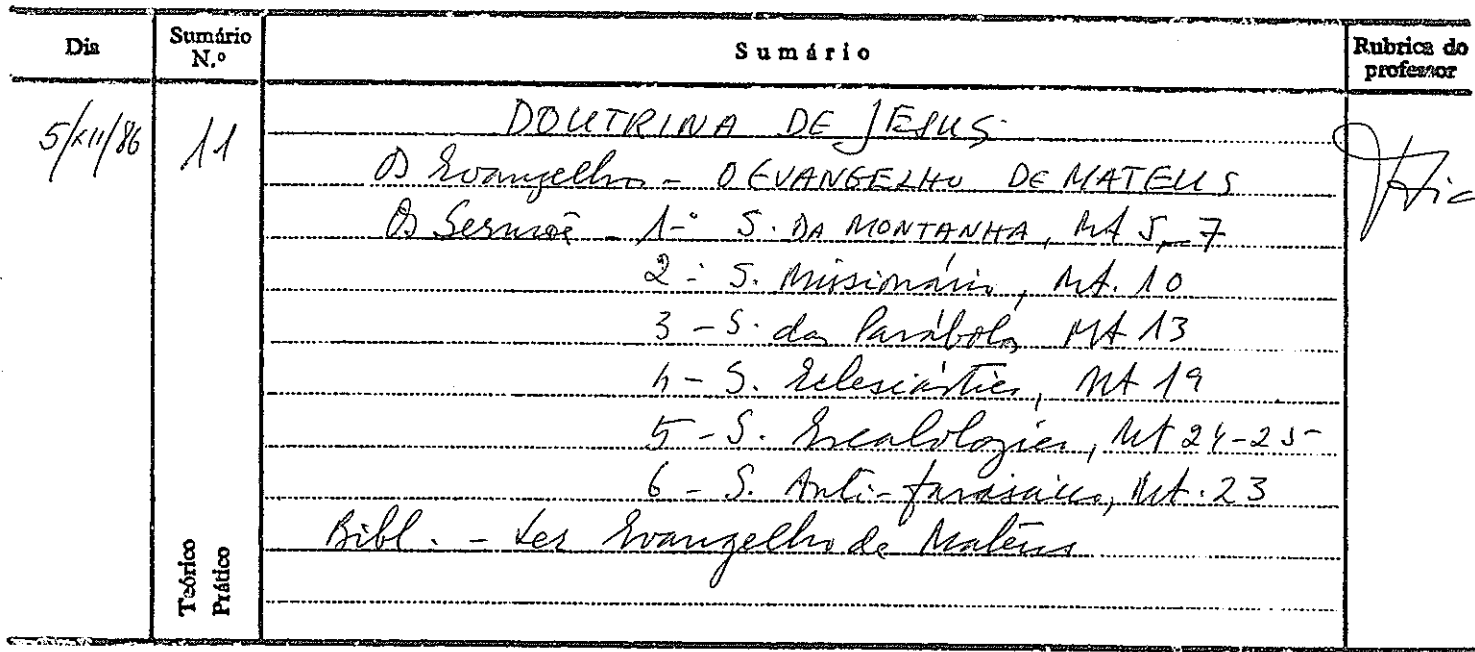 Dia Sumário N.º Sumário Rubrica do professor
5/XII/86 11 DOUTRINA DE JESUS
Os Evangelhos - O EVANGELHO DE MATEUS
Os Sermões - 1º S. DA MONTANHA, Mt 5, 7
2º S. Missionário, Mt. 10
3 - S. das Parábolas, Mt 13
4 - S. Eclesiástico, Mt 19
5 - S. Escatológico, Mt 24-25
6 - S. Anti-farisaico, Mt. 23
Bibl. - Ler Evangelho de Mateus
Teórico
Prático